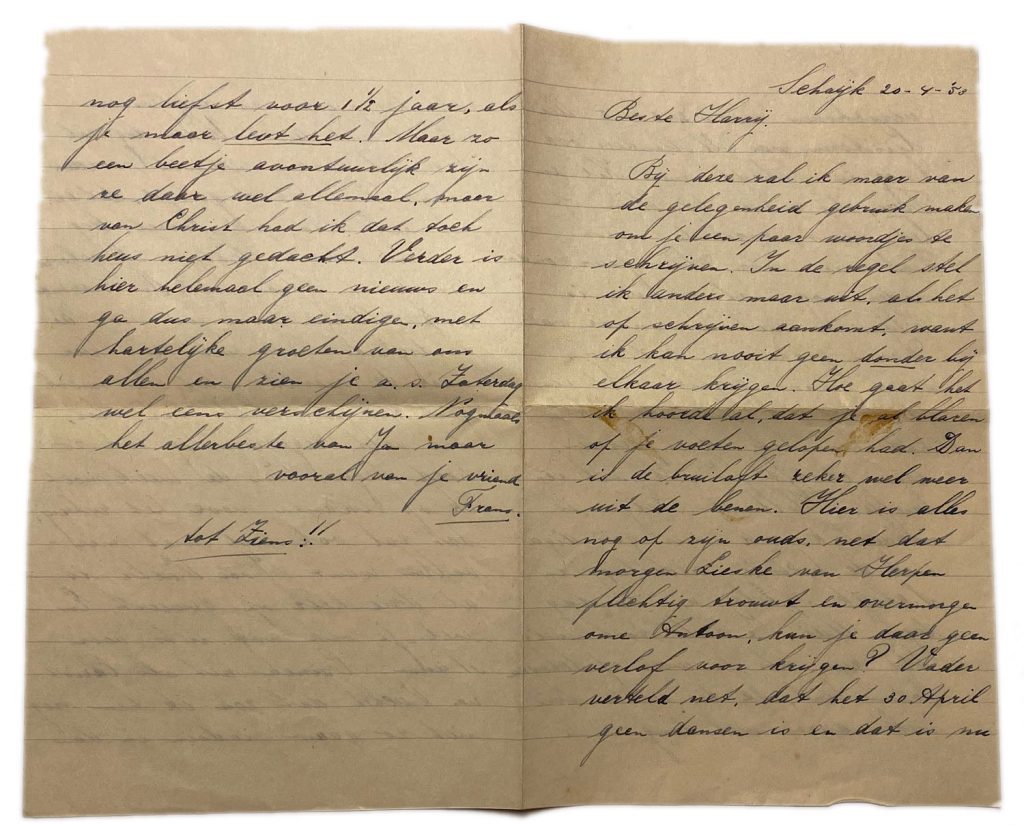 Schaijk 20-4-'50
Beste Harrij.
Bij deze zal ik maar van
de gelegenheid gebruik maken
om je een paar woordjes te
schrijven. In de regel stel
ik anders maar uit, als het
op schrijven aankomt, want
ik kan nooit geen donder bij
elkaar krijgen. Hoe gaat het
ik hoorde al, dat je al blaren
op je voeten gelopen had. Dan
is de bruiloft zeker wel weer
uit de benen. Hier is alles
nog op zijn ouds, net dat
morgen Lieske van Herpen
plechtig trouwt en overmorgen
ome Antoon, kun je daar geen
verlof voor krijgen? Vader
verteld net, dat het 30 April
geen dansen is en dat is nu
nog liefst voor 1 1/2 jaar, als
je maar leut het. Maar zo
een beetje avontuurlijk zijn
ze daar wel allemaal, maar
van Christ had ik dat toch
heus niet gedacht. Verder is
hier helemaal geen nieuws en
ga dus maar eindigen, met
hartelijke groeten van ons
allen en zien je a.s. Zaterdag
wel eens verschijnen. Nogmaals
het allerbeste van Jan maar
vooral van je vriend
Frans.
tot Ziens!!